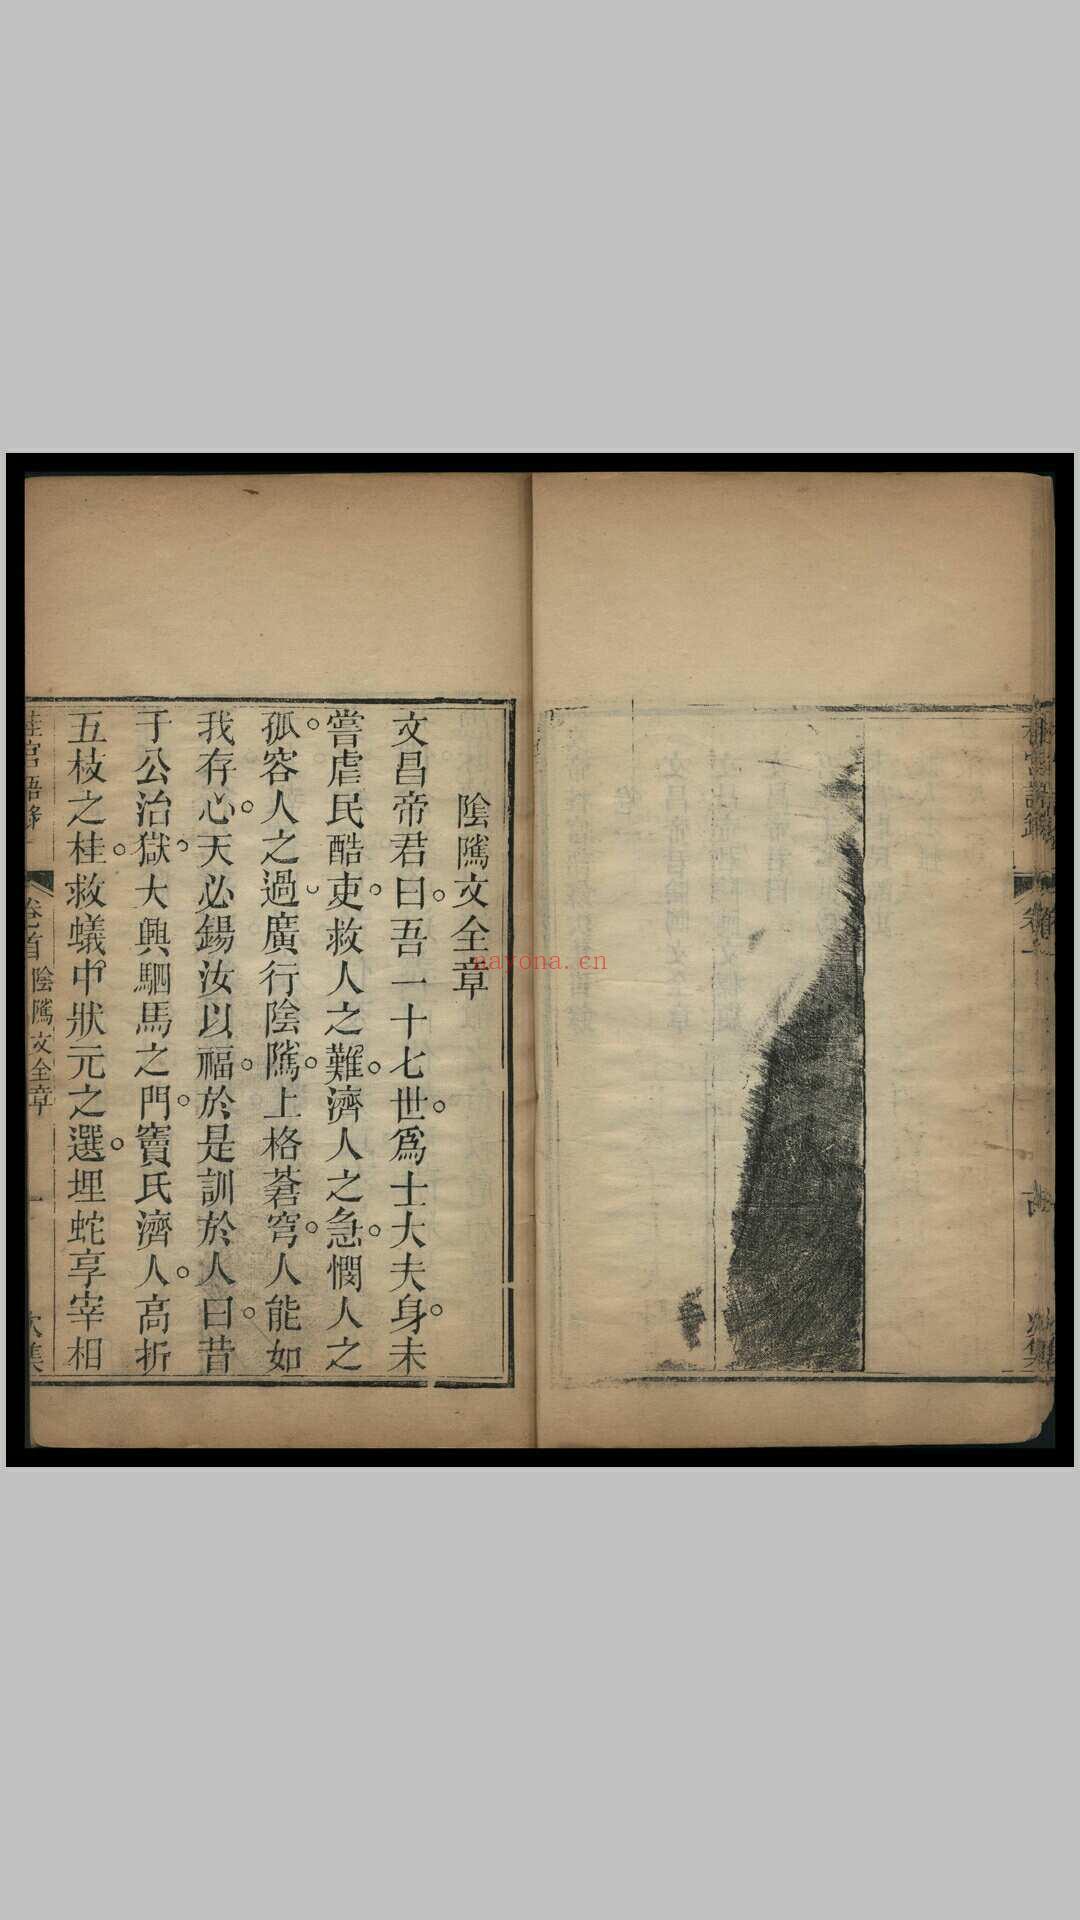 陰隲文全章
文昌帝君曰。吾一十七世。爲士大夫身。未
嘗虐民酷吏。救人之難。濟人之急。憫人之
孤。容人之過。廣行陰隲。上格蒼穹。人能如
我存心。天必錫汝以福。於是訓於人曰。昔
于公治獄。大興駟馬之門。竇氏濟人。高折
五枝之桂。救蟻中狀元之選。埋蛇享宰相
桂宮語錄 卷首 陰隲文全章 一
aayona.cn